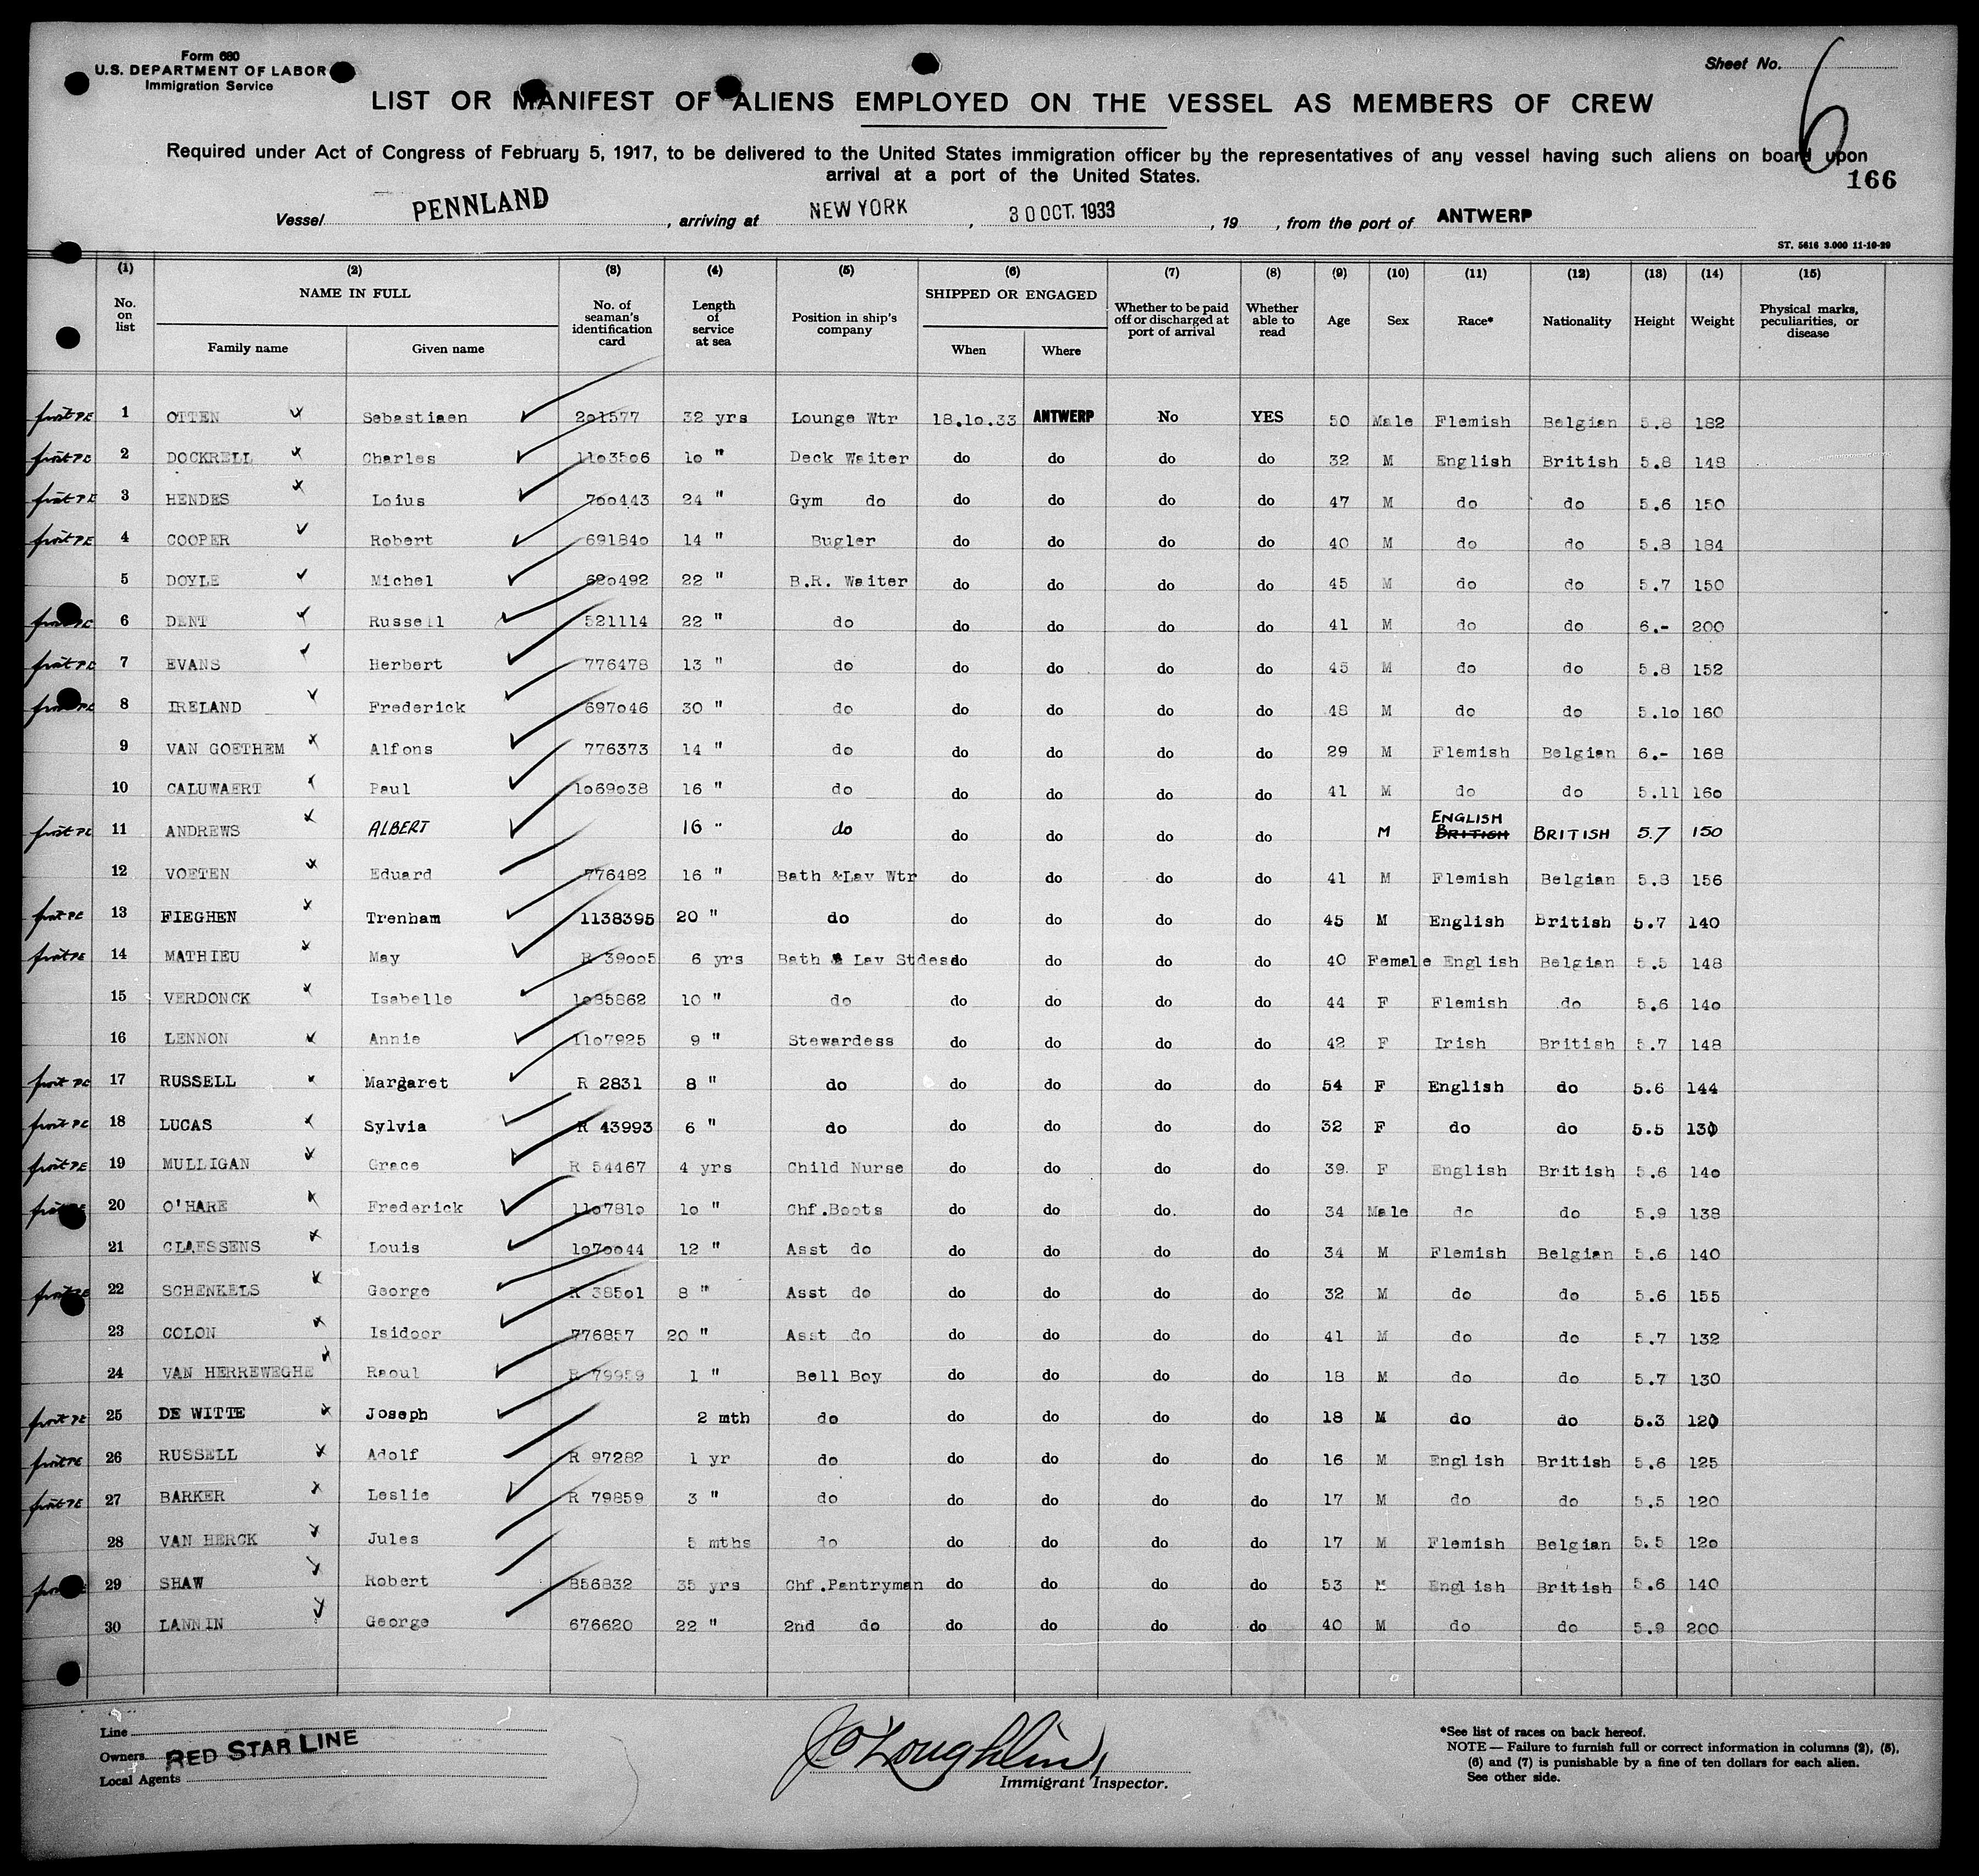 Form 680
U.S. DEPARTMENT OF LABOR
Immigration Service
Sheet No. 6
LIST OR MANIFEST OF ALIENS EMPLOYED ON THE VESSEL AS MEMBERS OF CREW
Required under Act of Congress of February 5, 1917, to be delivered to the United States immigration officer by the representatives of any vessel having such aliens on board upon
arrival at a port of the United States.
166
Vessel PENNLAND , arriving at NEW YORK , 30 OCT. 1933 , 19 , from the port of ANTWERP
ST. 5616 3.000 11-10-29
(1) (2) (3) (4) (5) (6) (7) (8) (9) (10) (11) (12) (13) (14) (15)
No. on list NAME IN FULL Family name Given name No. of seaman's identification card Length of service at sea Position in ship's company SHIPPED OR ENGAGED When Where Whether to be paid off or discharged at port of arrival Whether able to read Age Sex Race* Nationality Height Weight Physical marks, peculiarities, or disease
1 OTTEN Sebastiaen 201577 32 yrs Lounge Wtr 18.10.33 ANTWERP No YES 50 Male Flemish Belgian 5.8 182
2 DOCKRELL Charles 1103506 10 " Deck Waiter do do do do 32 M English British 5.8 148
3 HENDES Loius 700443 24 " Gym do do do do do 47 M do do 5.6 150
4 COOPER Robert 691840 14 " Bugler do do do do 40 M do do 5.8 184
5 DOYLE Michel 620492 22 " B.R. Waiter do do do do 45 M do do 5.7 150
6 DENT Russell 521114 22 " do do do do do 41 M do do 6.- 200
7 EVANS Herbert 776478 13 " do do do do do 45 M do do 5.8 152
8 IRELAND Frederick 697046 30 " do do do do do 48 M do do 5.10 160
9 VAN GOETHEM Alfons 776373 14 " do do do do do 29 M Flemish Belgian 6.- 168
10 CALUWAERT Paul 1069038 16 " do do do do do 41 M do do 5.11 160
11 ANDREWS ALBERT 16 " do do do do do M ENGLISH BRITISH BRITISH 5.7 150
12 VOETEN Eduard 776482 16 " Bath &Lav Wtr do do do do 41 M Flemish Belgian 5.8 156
13 FIEGHEN Trenham 1138395 20 " do do do do do 45 M English British 5.7 140
14 MATHIEU May R 39005 6 yrs Bath & Lav Stdess do do do do 40 Female English Belgian 5.5 148
15 VERDONCK Isabelle 1085862 10 " do do do do do 44 F Flemish do 5.6 140
16 LENNON Annie 1107925 9 " Stewardess do do do do 42 F Irish British 5.7 148
17 RUSSELL Margaret R 2831 8 " do do do do do 54 F English do 5.6 144
18 LUCAS Sylvia R 43993 6 " do do do do do 32 F do do 5.5 130
19 MULLIGAN Grace R 54467 4 yrs Child Nurse do do do do 39 F English British 5.6 140
20 O'HARE Frederick 1107810 10 " Chf.Boots do do do. do 34 Male do do 5.9 138
21 CLAESSENS Louis 1070044 12 " Asst do do do do do 34 M Flemish Belgian 5.6 140
22 SCHENKELS George R 38501 8 " Asst do do do do do 32 M do do 5.6 155
23 COLON Isidoor 776857 20 " Asst do do do do do 41 M do do 5.7 132
24 VAN HERREWEGHE Raoul R 79959 1 " Bell Boy do do do do 18 M do do 5.7 130
25 DE WITTE Joseph 2 mth do do do do do 18 M do do 5.3 120
26 RUSSELL Adolf R 97282 1 yr do do do do do 16 M English British 5.6 125
27 BARKER Leslie R 79859 3 " do do do do do 17 M do do 5.5 120
28 VAN HERCK Jules 5 mths do do do do do 17 M Flemish Belgian 5.5 120
29 SHAW Robert 856832 35 yrs Chf.Pantryman do do do do 53 M English British 5.6 140
30 LANNIN George 676620 22 " 2nd do do do do do 40 M do do 5.9 200
Line
Owners RED STAR LINE
Local Agents
Immigrant Inspector.
*See list of races on back hereof.
NOTE — Failure to furnish full or correct information in columns (2), (5),
(6) and (7) is punishable by a fine of ten dollars for each alien.
See other side.